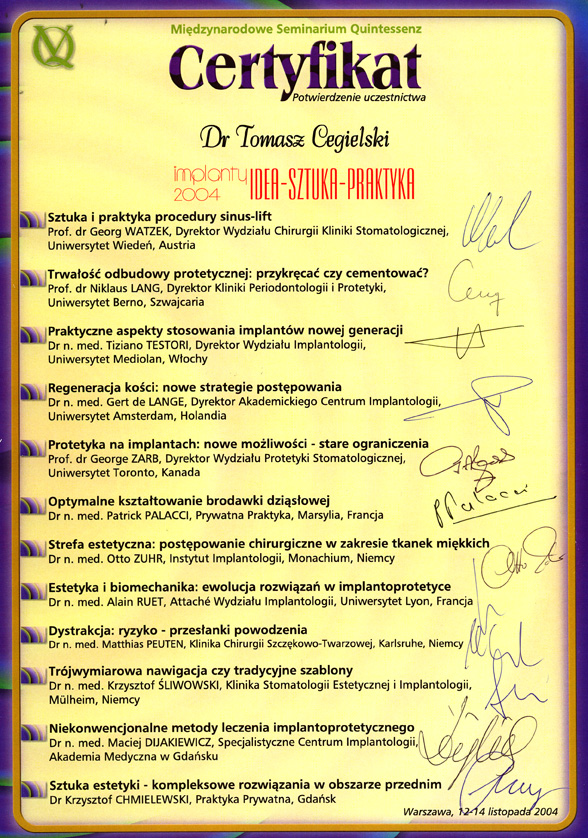 Międzynarodowe Seminarium Quintessenz
Certyfikat
Potwierdzenie uczestnictwa
Dr Tomasz Cegielski
implanty
2004
IDEA-SZTUKA-PRAKTYKA
Sztuka i praktyka procedury sinus-lift
Prof. dr Georg WATZEK, Dyrektor Wydziału Chirurgii Kliniki Stomatologicznej,
Uniwersytet Wiedeń, Austria
Trwałość odbudowy protetycznej: przykręcać czy cementować?
Prof. dr Niklaus LANG, Dyrektor Kliniki Periodontologii i Protetyki,
Uniwersytet Berno, Szwajcaria
Praktyczne aspekty stosowania implantów nowej generacji
Dr n. med. Tiziano TESTORI, Dyrektor Wydziału Implantologii,
Uniwersytet Mediolan, Włochy
Regeneracja kości: nowe strategie postępowania
Dr n. med. Gert de LANGE, Dyrektor Akademickiego Centrum Implantologii,
Uniwersytet Amsterdam, Holandia
Protetyka na implantach: nowe możliwości - stare ograniczenia
Prof. dr George ZARB, Dyrektor Wydziału Protetyki Stomatologicznej,
Uniwersytet Toronto, Kanada
Optymalne kształtowanie brodawki dziąsłowej
Dr n. med. Patrick PALACCI, Prywatna Praktyka, Marsylia, Francja
P Palacci
Strefa estetyczna: postępowanie chirurgiczne w zakresie tkanek miękkich
Dr n. med. Otto ZUHR, Instytut Implantologii, Monachium, Niemcy
Otto
Estetyka i biomechanika: ewolucja rozwiązań w implantoprotetyce
Dr n. med. Alain RUET, Attaché Wydziału Implantologii, Uniwersytet Lyon, Francja
Dystrakcja: ryzyko - przesłanki powodzenia
Dr n. med. Matthias PEUTEN, Klinika Chirurgii Szczękowo-Twarzowej, Karlsruhe, Niemcy
Trójwymiarowa nawigacja czy tradycyjne szablony
Dr n. med. Krzysztof ŚLIWOWSKI, Klinika Stomatologii Estetycznej i Implantologii,
Mülheim, Niemcy
Niekonwencjonalne metody leczenia implantoprotetycznego
Dr n. med. Maciej DIJAKIEWICZ, Specjalistyczne Centrum Implantologii,
Akademia Medyczna w Gdańsku
Sztuka estetyki - kompleksowe rozwiązania w obszarze przednim
Dr Krzysztof CHMIELEWSKI, Praktyka Prywatna, Gdańsk
Warszawa, 12-14 listopada 2004